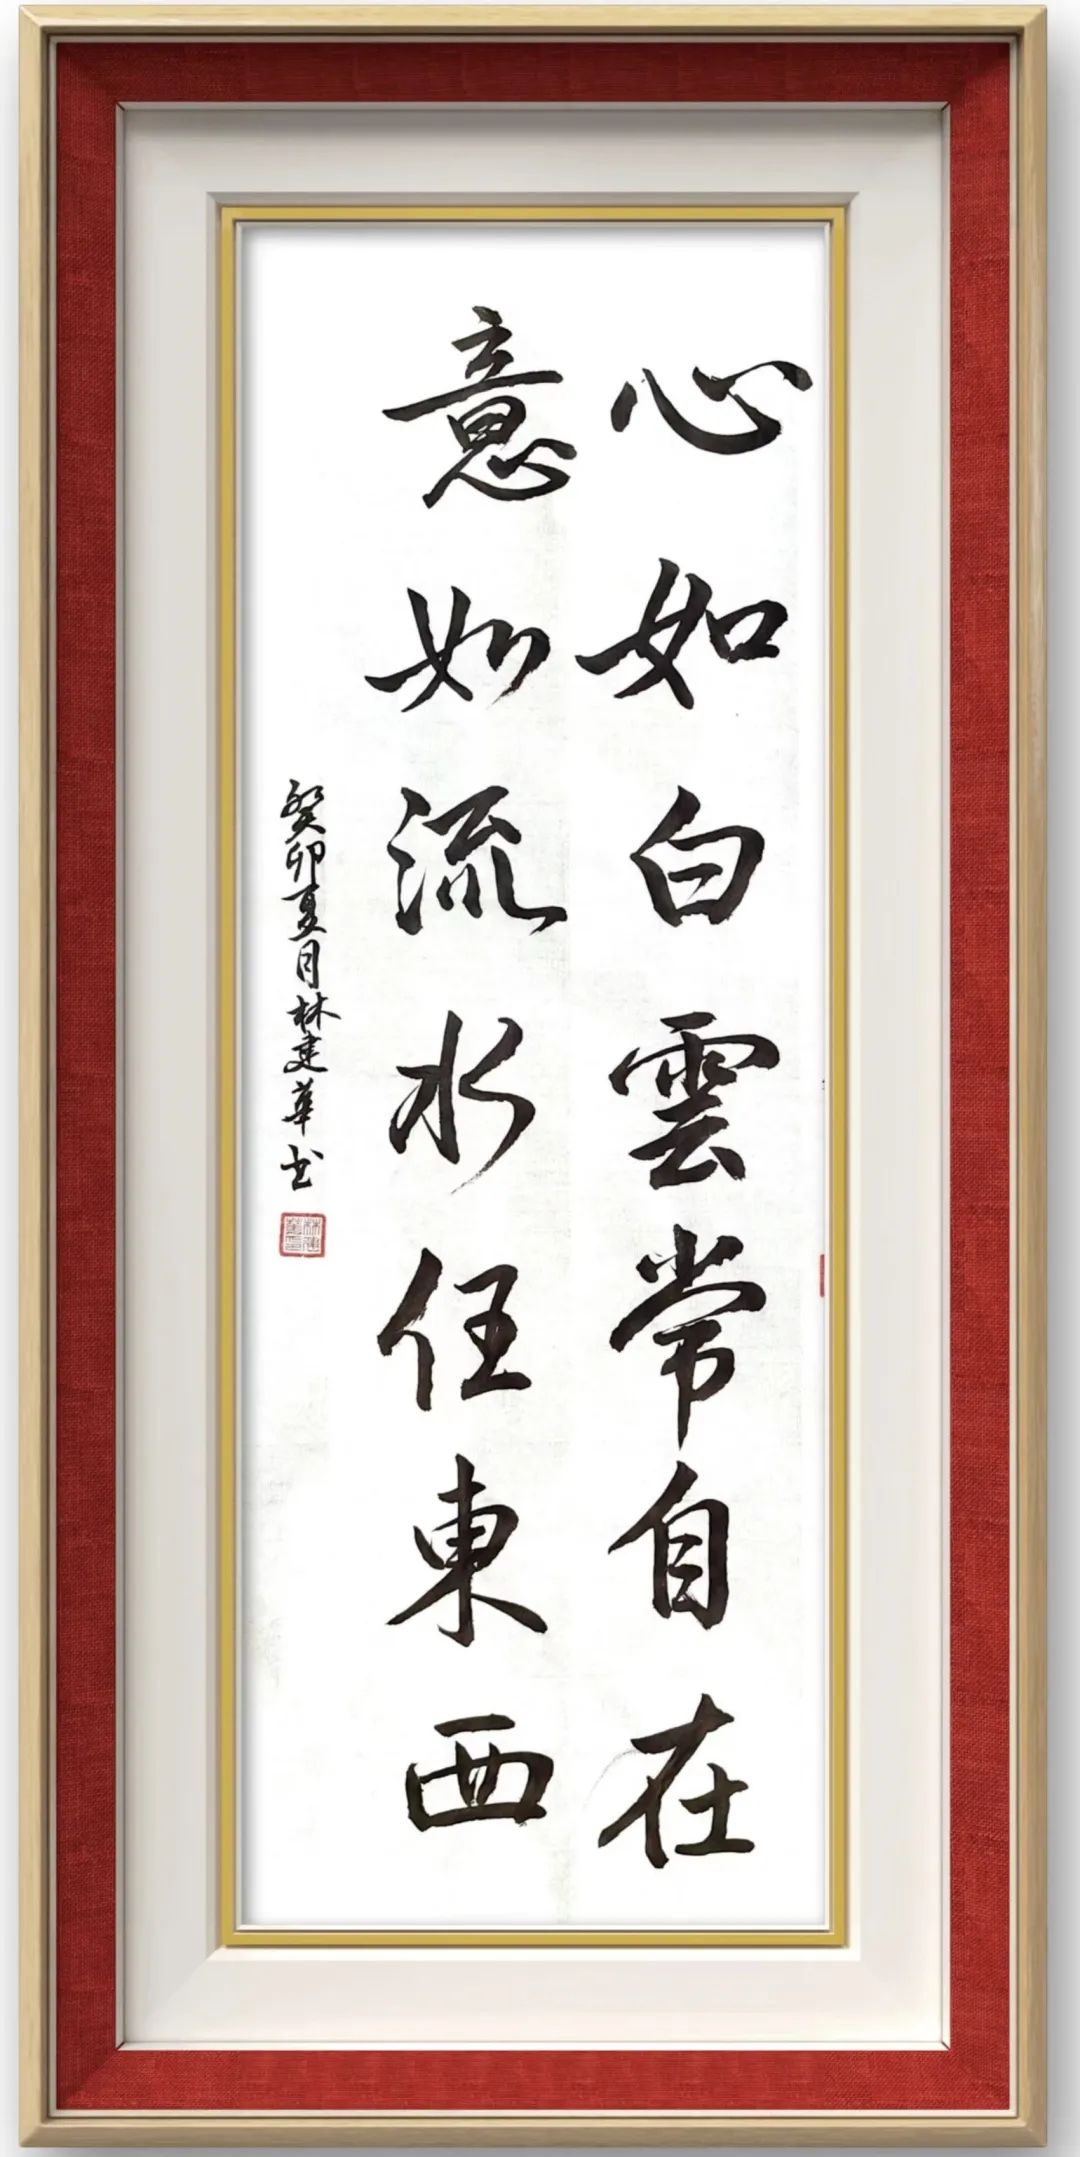 心如白雲常自在
意如流水任東西
癸卯夏月林建華书